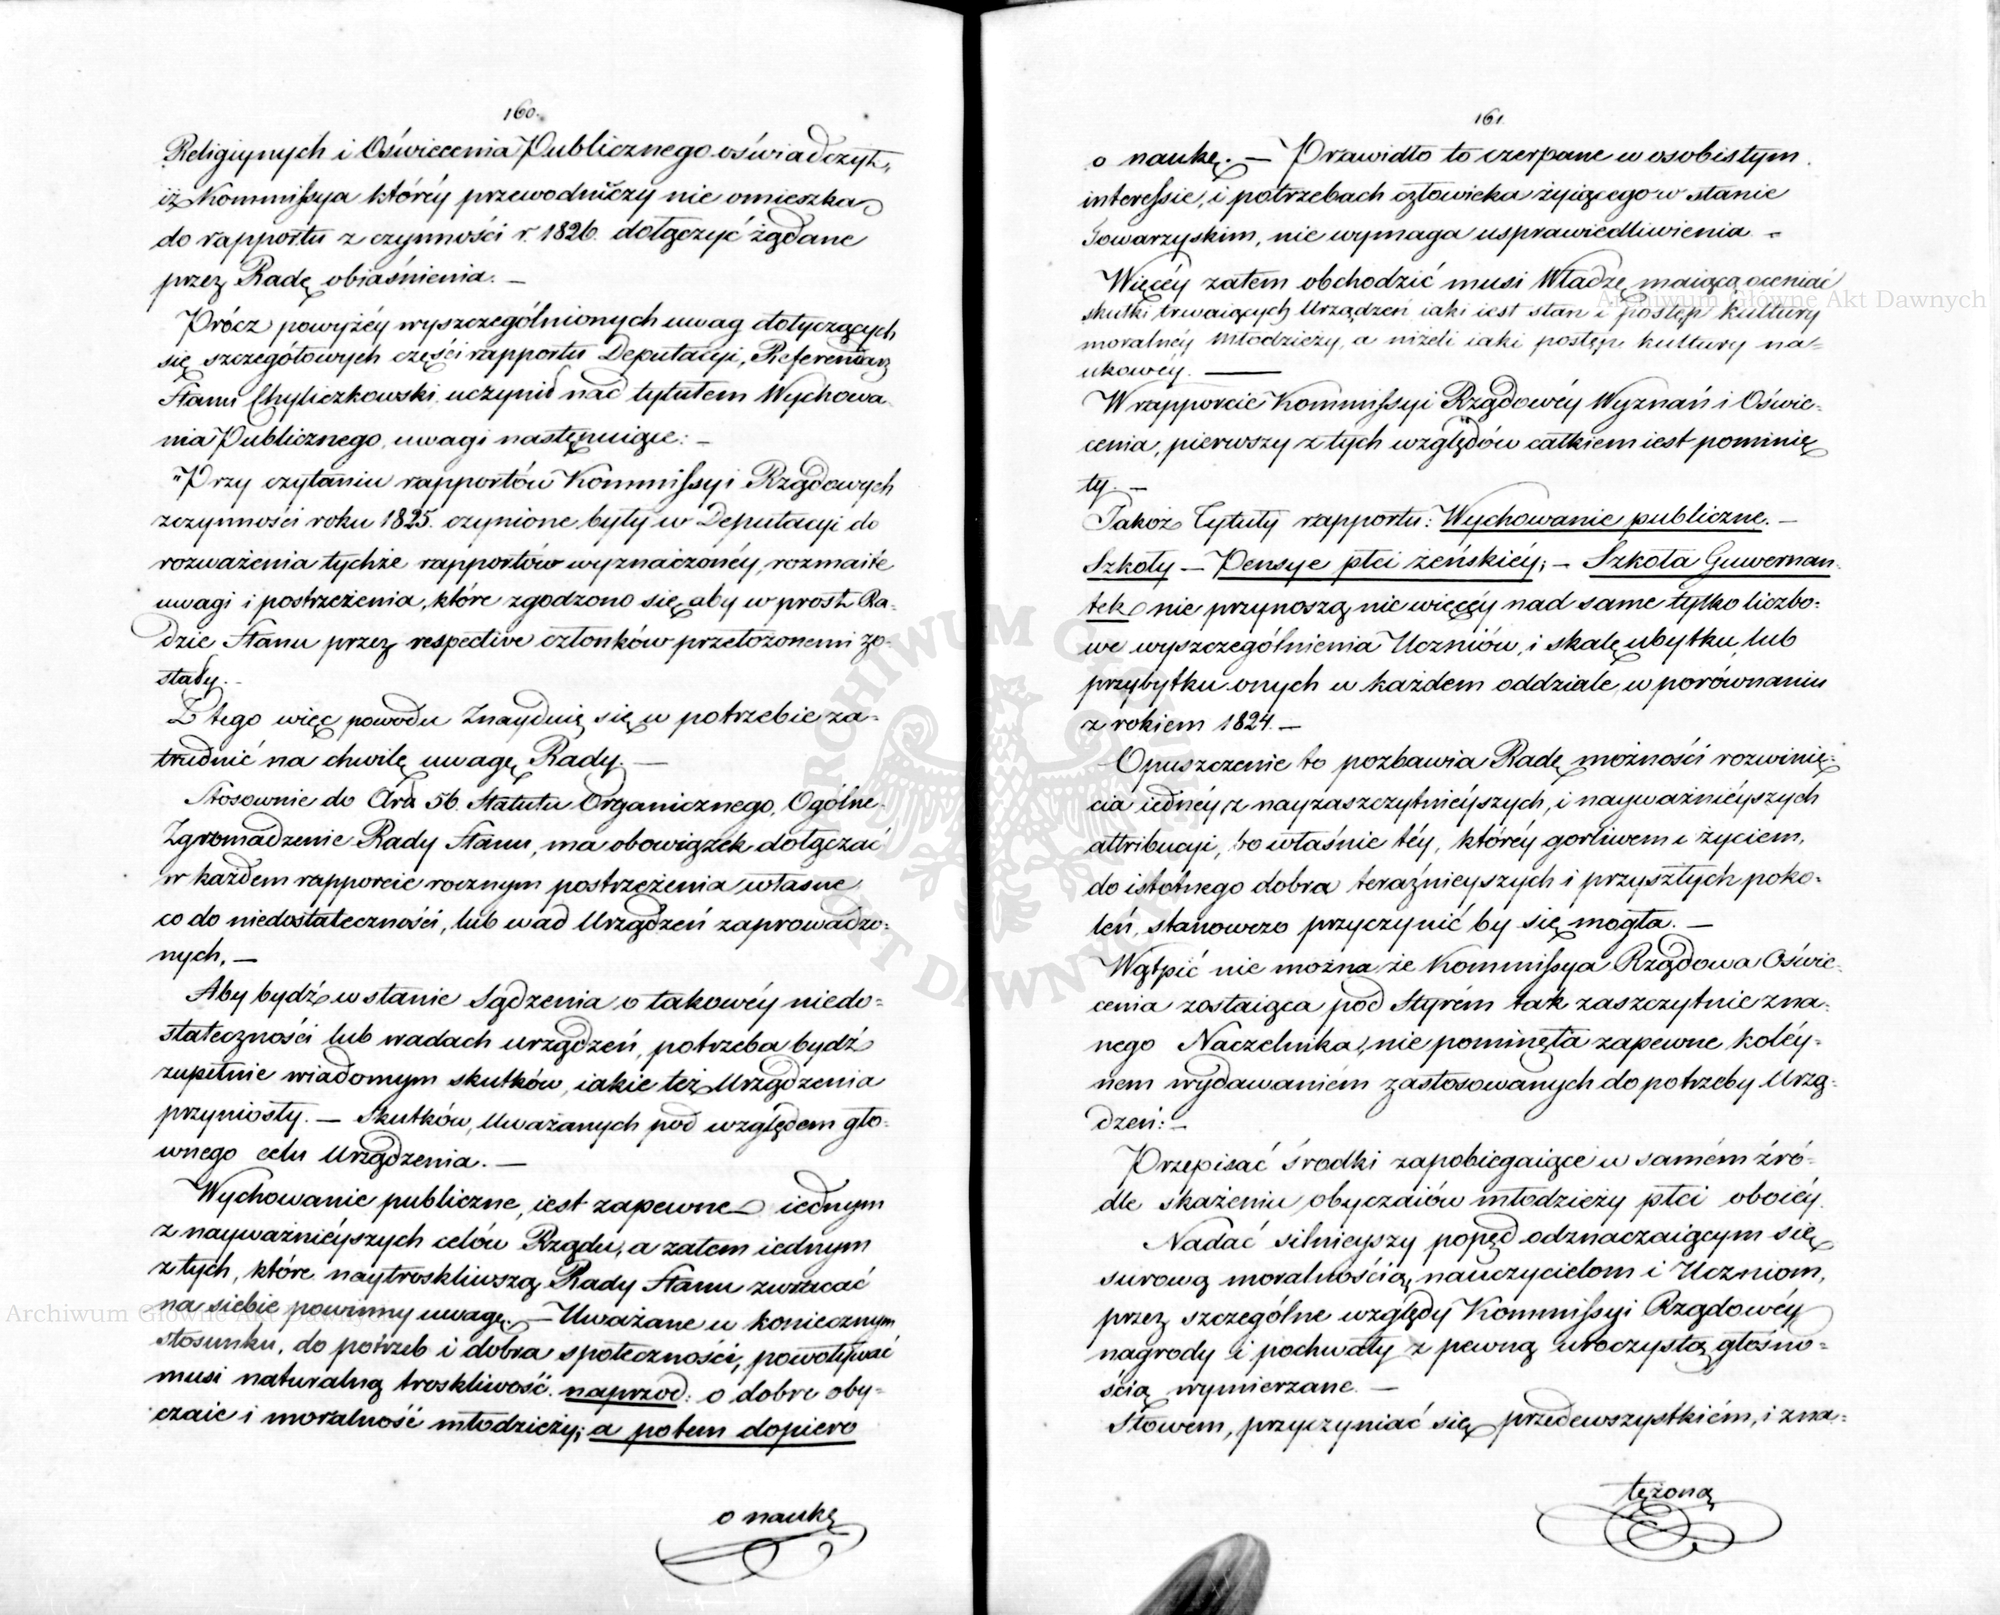 160.
Religiynych i Oświecenia Publicznego oświadczył,
iż Kommissya któréy przewodniczy nie omieszka
do rapportu z czynności r. 1826. dołączyć żądane
przez Radę obiaśnienia. —
Prócz powyżéy wyszczególnionych uwag dotyczących
się szczegółowych części rapportu Deputacyi, Referendarz
Stanu Chyliczkowski uczynił nad tytułem Wychowa-
nia Publicznego, uwagi następuiące: —
"Przy czytaniu rapportów Kommissyi Rządowych
z czynności roku 1825. czynione były w Deputacyi do
rozważenia tychże rapportów wyznaczonéy, rozmaite
uwagi i postrzeżenia, które zgodzono się, aby wprost Ra-
dzie Stanu przez respective członków przełożonemi zo-
stały. —
Z tego więc powodu znayduię się w potrzebie za-
trudnić na chwilę uwagę Rady. —
Stosownie do Ard. 56. Statutu Organicznego, Ogólne
Zgromadzenie Rady Stanu, ma obowiązek dołączać
w każdem rapporcie rocznym postrzeżenia własne
co do niedostateczności, lub wad Urządzeń zaprowadzo-
nych, —
Aby bydź w stanie Sądzenia o takowéy niedo-
stateczności lub wadach urządzeń, potrzeba bydź
zupełnie wiadomym skutków, iakie też Urządzenia
przyniosły. — Skutków, Uważanych pod względem głó-
wnego celu Urządzenia. —
Wychowanie publiczne, iest zapewne iednym
z nayważniéyszych celów Rządu, a zatem iednym
z tych, które naytroskliwszą Rady Stanu zwracać
na siebie powinny uwagę. — Uważane w koniecznym
stosunku, do potrzeb i dobra społeczności, powoływać
musi naturalną troskliwość. naprzod: o dobre oby-
czaie i moralność młodzieży; a potem dopiero
o naukę
161.
o naukę. — Prawidło to czerpane w osobistym
interessie, i potrzebach człowieka żyiącego w stanie
Towarzyskim, nie wymaga usprawiedliwienia. —
Więcéy zatem obchodzić musi Władzę maiącą oceniać
skutki trwaiących Urządzeń iaki iest stan i postęp kultury
moralnéy młodzieży, a niżeli iaki postęp kultury na-
ukowéy. —
W rapporcie Kommissyi Rządowéy Wyznań i Oświe-
cenia, pierwszy z tych względów całkiem iest pominię
ty. —
Jakoż Tytuły rapportu: Wychowanie publiczne. —
Szkoły — Pensye płci żeńskiéy; — Szkoła Guwernan-
tek nie przynoszą nic więcéy nad same tylko liczbo-
we wyszczególnienia Uczniów, i skalę ubytku, lub
przybytku onych w każdem oddziale, w porównaniu
z rokiem 1824. —
Opuszczenie to pozbawia Radę możności rozwinię-
cia iednéy z nayzaszczytniéyszych, i nayważniéyszych
attribucyi, bo właśnie téy, któréy gorliwem użyciem,
do istotnego dobra teraźnieyszych i przyszłych poko-
leń, stanowczo przyczynić by się mogła. —
Wątpić nie można że Kommissya Rządowa Oświe-
cenia zostaiąca pod Styrém tak zaszczytnie zna-
nego Naczelnika, nie pominęła zapewne koléy-
nem wydawaniem zastosowanych do potrzeby Urzą-
dzeń: —
Przepisać środki zapobiegaiące w samém źró-
dle skażeniu obyczaiów młodzieży płci oboiéy.
Nadać silnieyszy popęd odznaczaiącym się
surową moralnością, nauczycielom i Uczniom,
przez szczególne względy Kommissyi Rządowéy
nagrody i pochwały z pewną uroczystą głośno-
ścią wymierzane. —
Słowem, przyczyniać się przedewszystkiém, i zna-
tężoną
Archiwum Główne Akt Dawnych
Archiwum Główne Akt Dawnych
ARCHIWUM GŁÓWNE AKT DAWNYCH